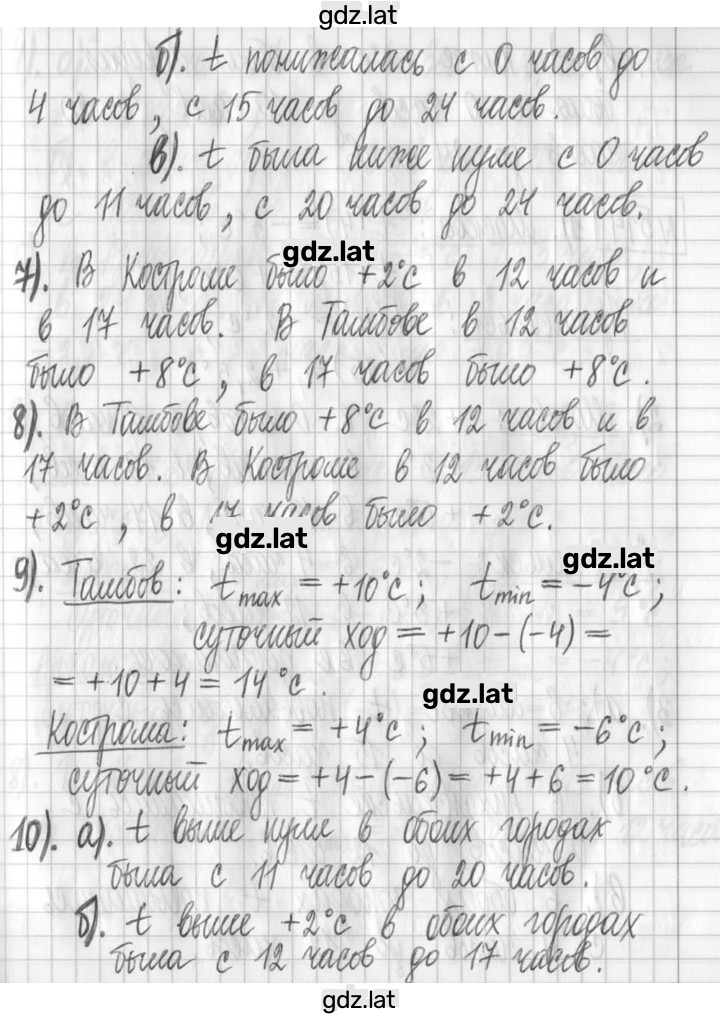 gdz.lat
б). t понижалась с 0 часов до
4 часов, с 15 часов до 24 часов.
в). t была ниже нуля с 0 часов
до 11 часов, с 20 часов до 24 часов.
gdz.lat
7). В Костроме было +2°С в 12 часов и
в 17 часов. В Тамбове в 12 часов
было +8°С, в 17 часов было +8°С.
8). В Тамбове было +8°С в 12 часов и в
17 часов. В Костроме в 12 часов было
+2°С, в 17 часов было +2°С.
gdz.lat
gdz.lat
9). Тамбов: tmax = +10°С; tmin = -4°С;
суточный ход = +10-(-4) =
= +10+4 = 14°С.
gdz.lat
Кострома: tmax = +4°С; tmin = -6°С;
суточный ход = +4-(-6) = +4+6 = 10°С.
10). а). t выше нуля в обоих городах
была с 11 часов до 20 часов.
б). t выше +2°С в обоих городах
была с 12 часов до 17 часов.
gdz.lat